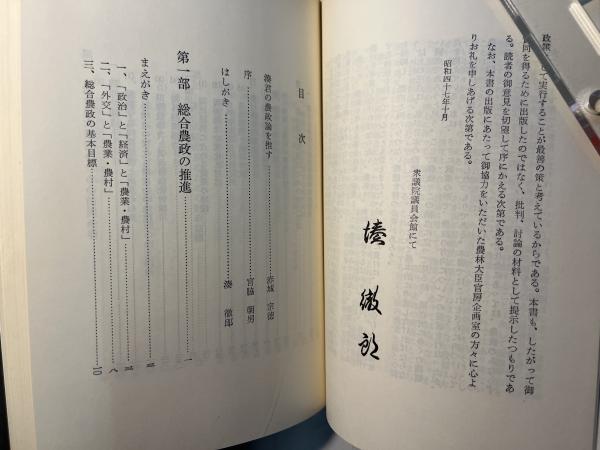 政策として実行することが最善の策と考えているからである。本書も、したがって御
協同を得るために出版したのではなく、批判、討論の材料として提示したつもりであ
る。読者の御意見を切望して序にかえる次第である。
なお、本書の出版にあたって御協力をいただいた農林大臣官房企画室の方々に心よ
りお礼を申しあげる次第である。
昭和四十七年十月
衆議院議員会館にて
湊徹郎
目次
湊君の農政論を推す……赤城宗徳
序……宮脇朝男
はしがき……湊徹郎
第一部 総合農政の推進……一
まえがき
一、「政治」と「経済」と「農業・農村」
二、「外交」と「農業・農村」……八
三、総合農政の基本目標……一〇